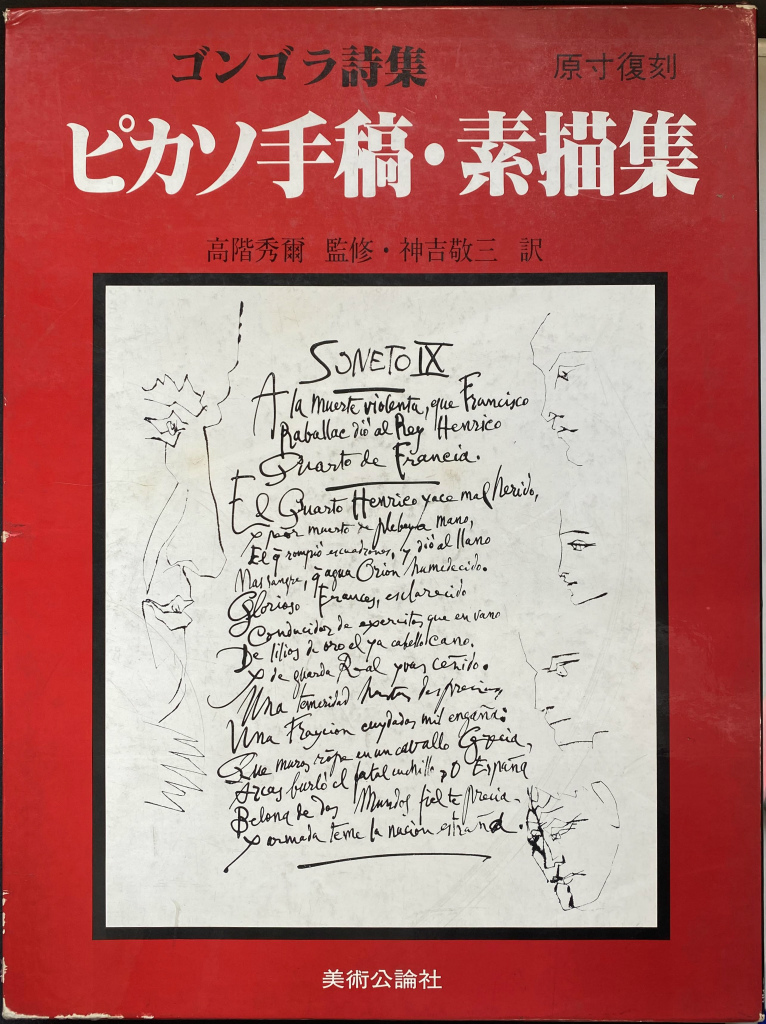 ゴンゴラ詩集 原寸復刻
ピカソ手稿・素描集
高階秀爾 監修・神吉敬三 訳
SONETO IX
A la muerte violenta, que Francisco
Raballac dió al Rey Henrico
Quarto de Francia.
El Quarto Henrico yace mal herido,
y peor muerto de plebeya mano,
El q̄ rompió escuadrones, y dió al llano
Mas sangre, q̄ agua Orion humedecido.
Glorioso Frances, esclarecido
Conducidor de exercitos que en vano
De lilios de oro el ya cabello cano.
y de guarda Real yvas ceñido.
Una temeridad
Una Traycion cuydados mil engaña:
Que muros rōpe en un caballo Grecia,
Arcas burló el fatal cuchillo, O España
Belona de dos Mundos fiel te precia.
y armada teme la nacion estraña.
美術公論社